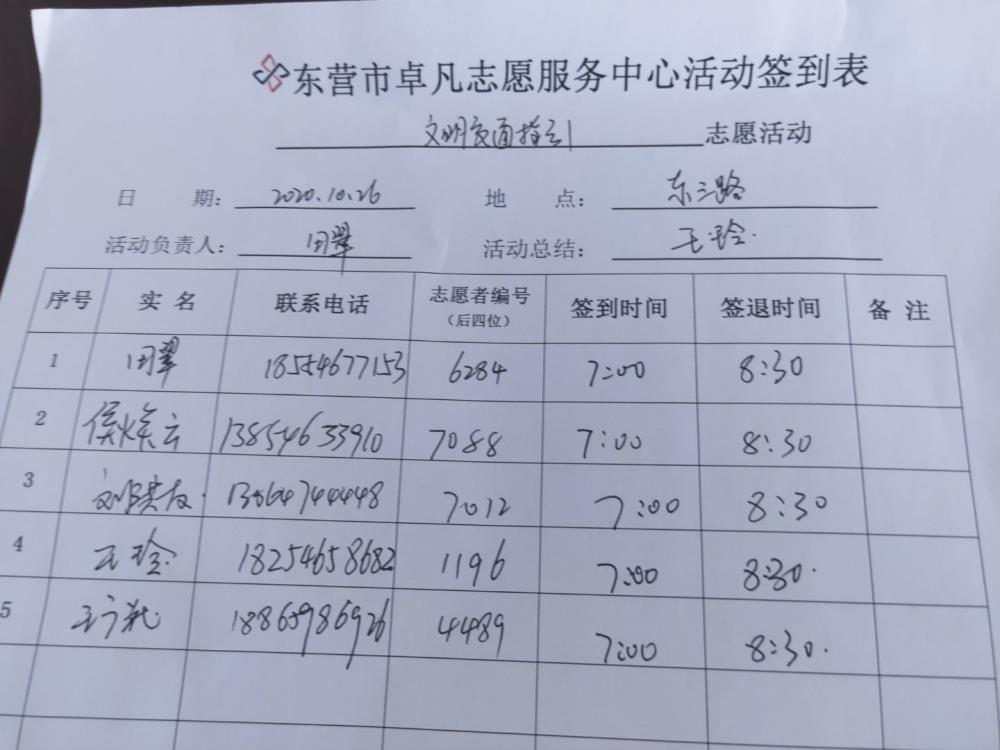 东营市卓凡志愿服务中心活动签到表
文明交通指引 志愿活动
日 期: 2020.10.26 地 点: 东三路
活动负责人: 田翠 活动总结: 王玲.
序号 实 名 联系电话 志愿者编号(后四位) 签到时间 签退时间 备 注
1 田翠 18554677153 6284 7:00 8:30
2 侯焕云 13854633910 7088 7:00 8:30
3 13064744448 7012 7:00 8:30
4 王玲. 18254658682 1196 7:00 8:30.
5 18865986926 4489 7:00 8:30.